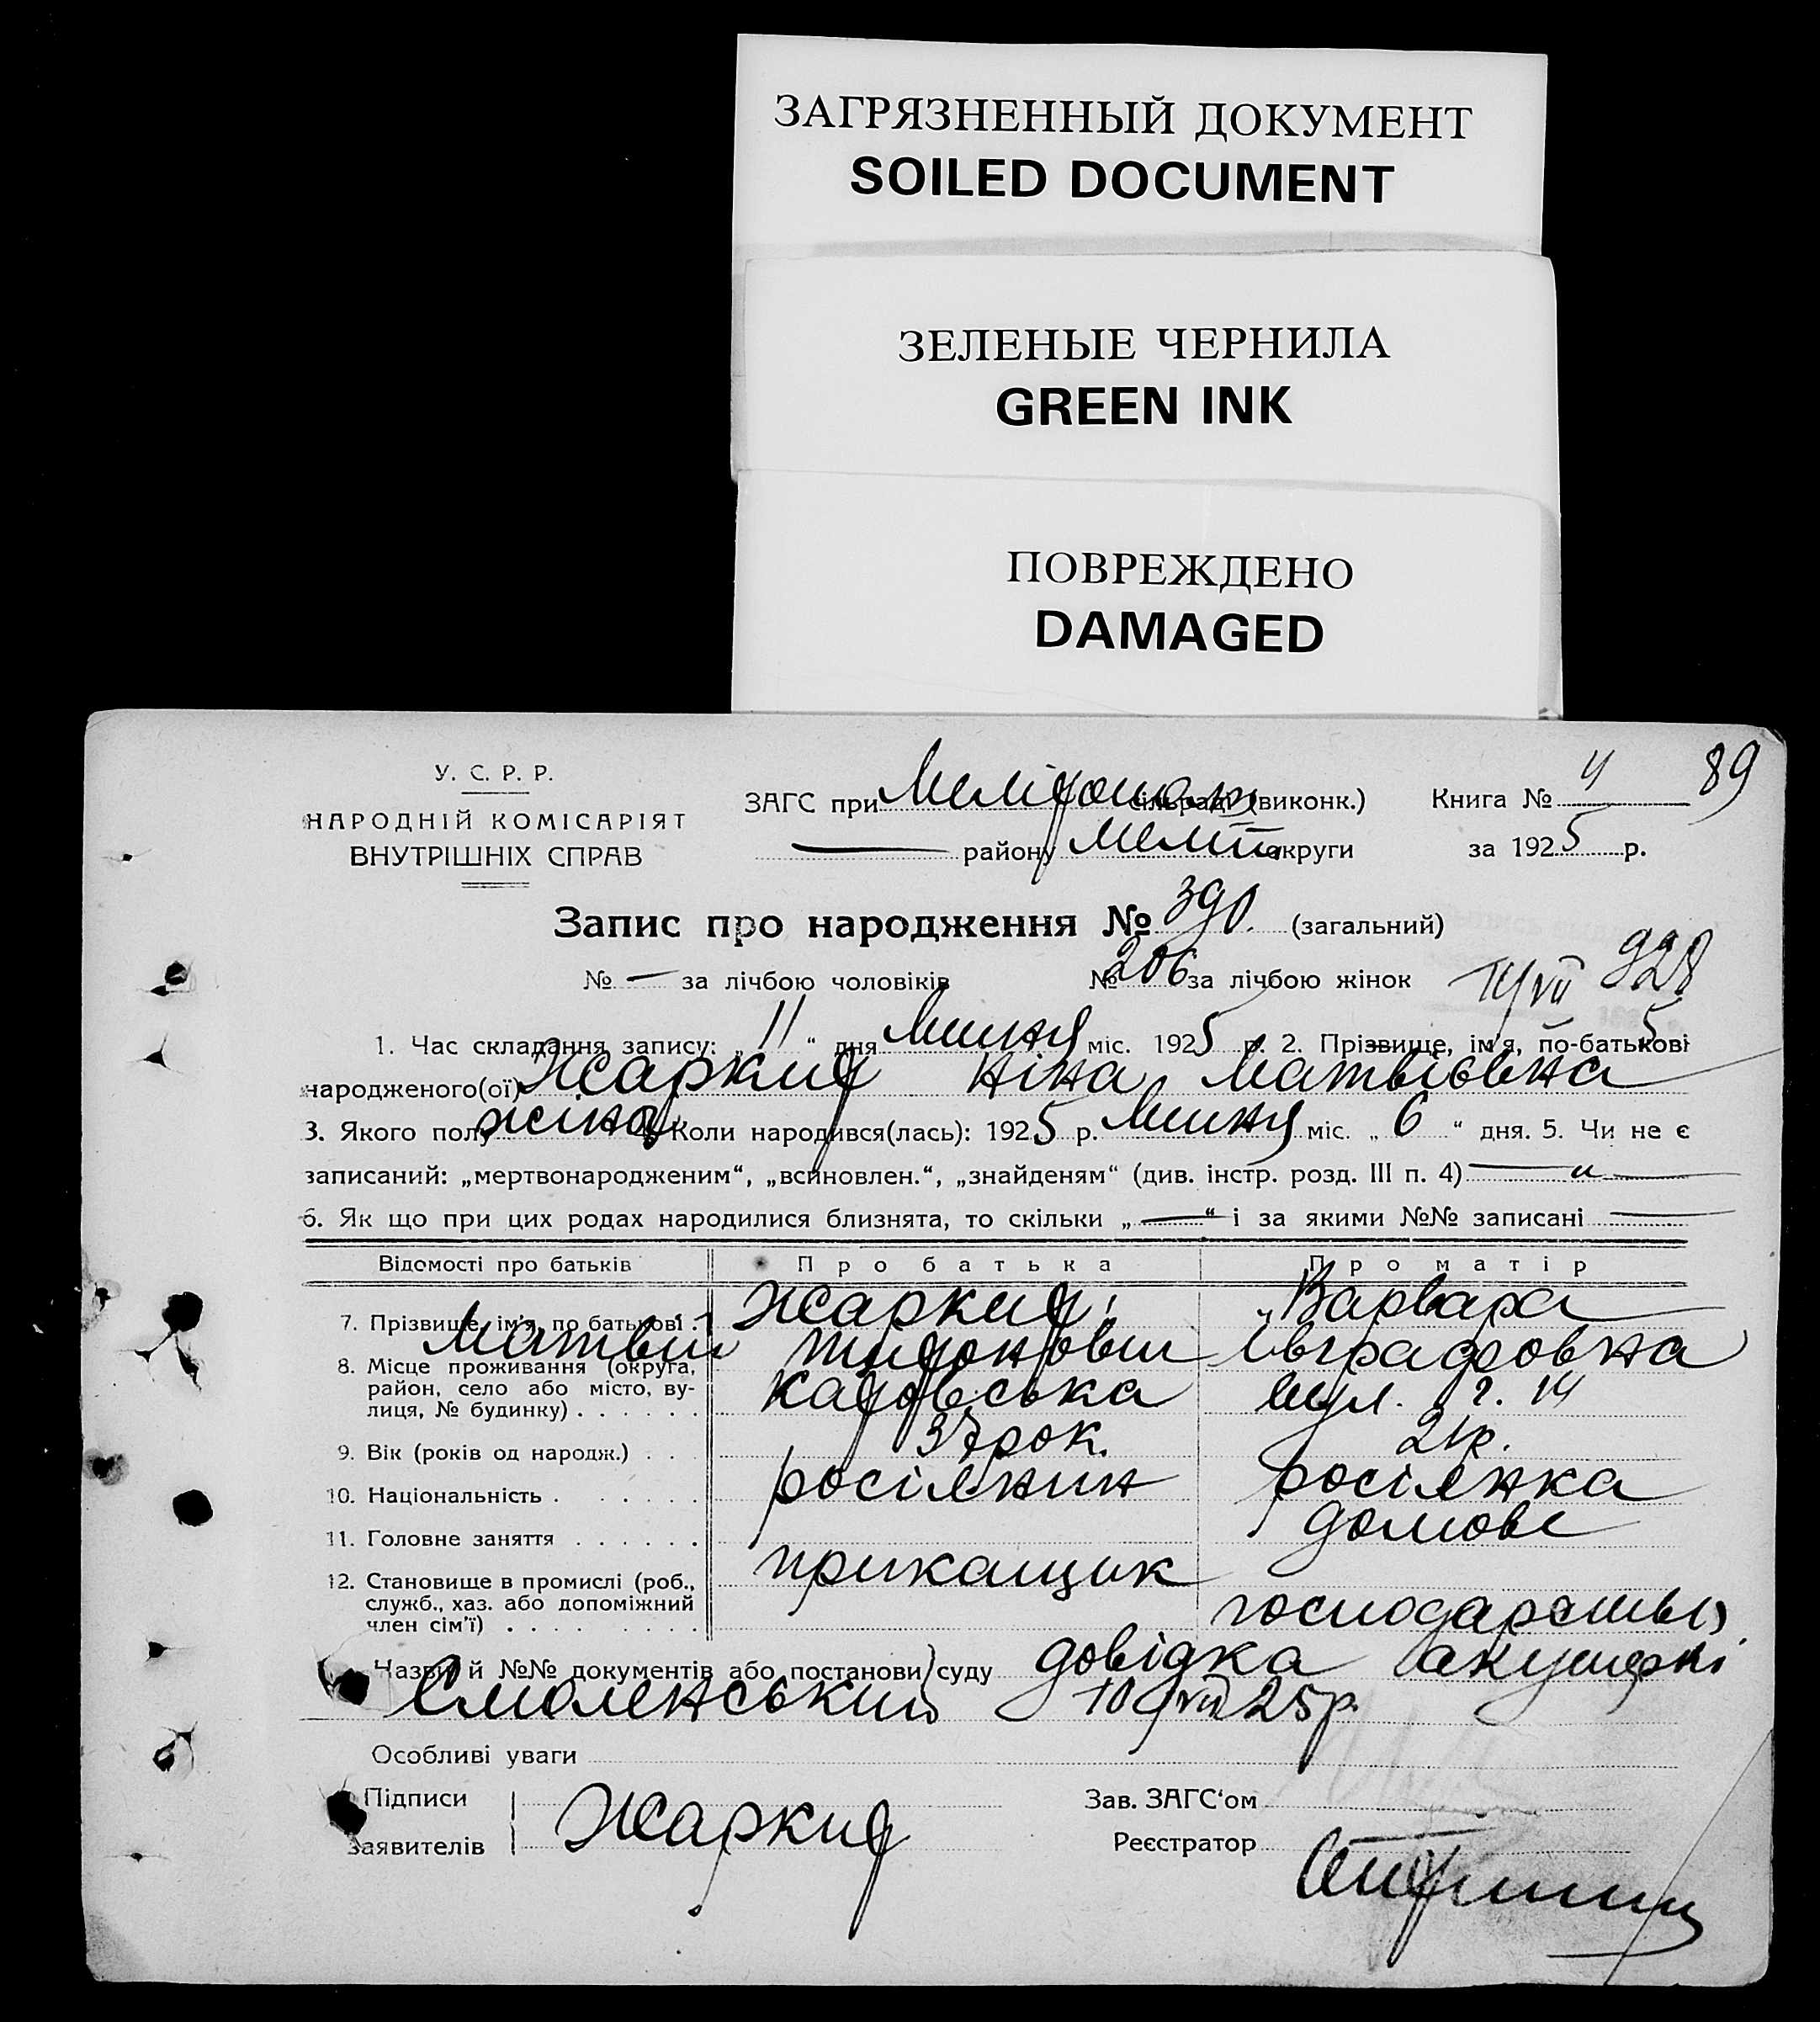 ЗАГРЯЗНЕННЫЙ ДОКУМЕНТ
SOILED DOCUMENT
ЗЕЛЕНЫЕ ЧЕРНИЛА
GREEN INK
ПОВРЕЖДЕНО
DAMAGED
У. С. Р. Р.
НАРОДНІЙ КОМІСАРІЯТ
ВНУТРІШНІХ СПРАВ
ЗАГС при сільраді (виконк.) Книга № 4 89
— району Меліт. округи за 1925 р.
Запис про народження № 390. (загальний)
№ — за лічбою чоловіків № 206 за лічбою жінок 928
1. Час складання запису: „ 11 “ дня Липня міс. 1925 р. 2. Прізвище, ім'я, по-батькові
народженого(ої) Жаркид Ніна Матвіівна
3. Якого полу жіноч. 4. Коли народився(лась): 1925 р. Липня міс. „ 6 “ дня. 5. Чи не є
записаний: „мертвонародженим“, „всиновлен.“, „знайденям“ (див. інстр. розд. III п. 4) — „ —
6. Як що при цих родах народилися близнята, то скільки „ — “ і за якими №№ записані —
Відомості про батьків Про батька Про матір
7. Прізвище, ім'я, по батькові . Жаркид, Варвара
Матвій Евграфовна
8. Місце проживання (округа, район, село або місто, вулиця, № будинку) . . . . . .
9. Вік (років од народж.) . . . 37 рок. 21 р.
10. Національність . . . . . . росіянин росіянка
11. Головне заняття . . . . . . домове
12. Становище в промислі (роб., прикащик
служб., хаз. або допоміжний господарство
член сім'ї) . . . . . . . .
Назви й №№ документів або постанови суду довідка акушерки
Смоленський 10/VII 25 р.
Особливі уваги
Підписи Зав. ЗАГС'ом
Заявителів Жаркид Реєстратор